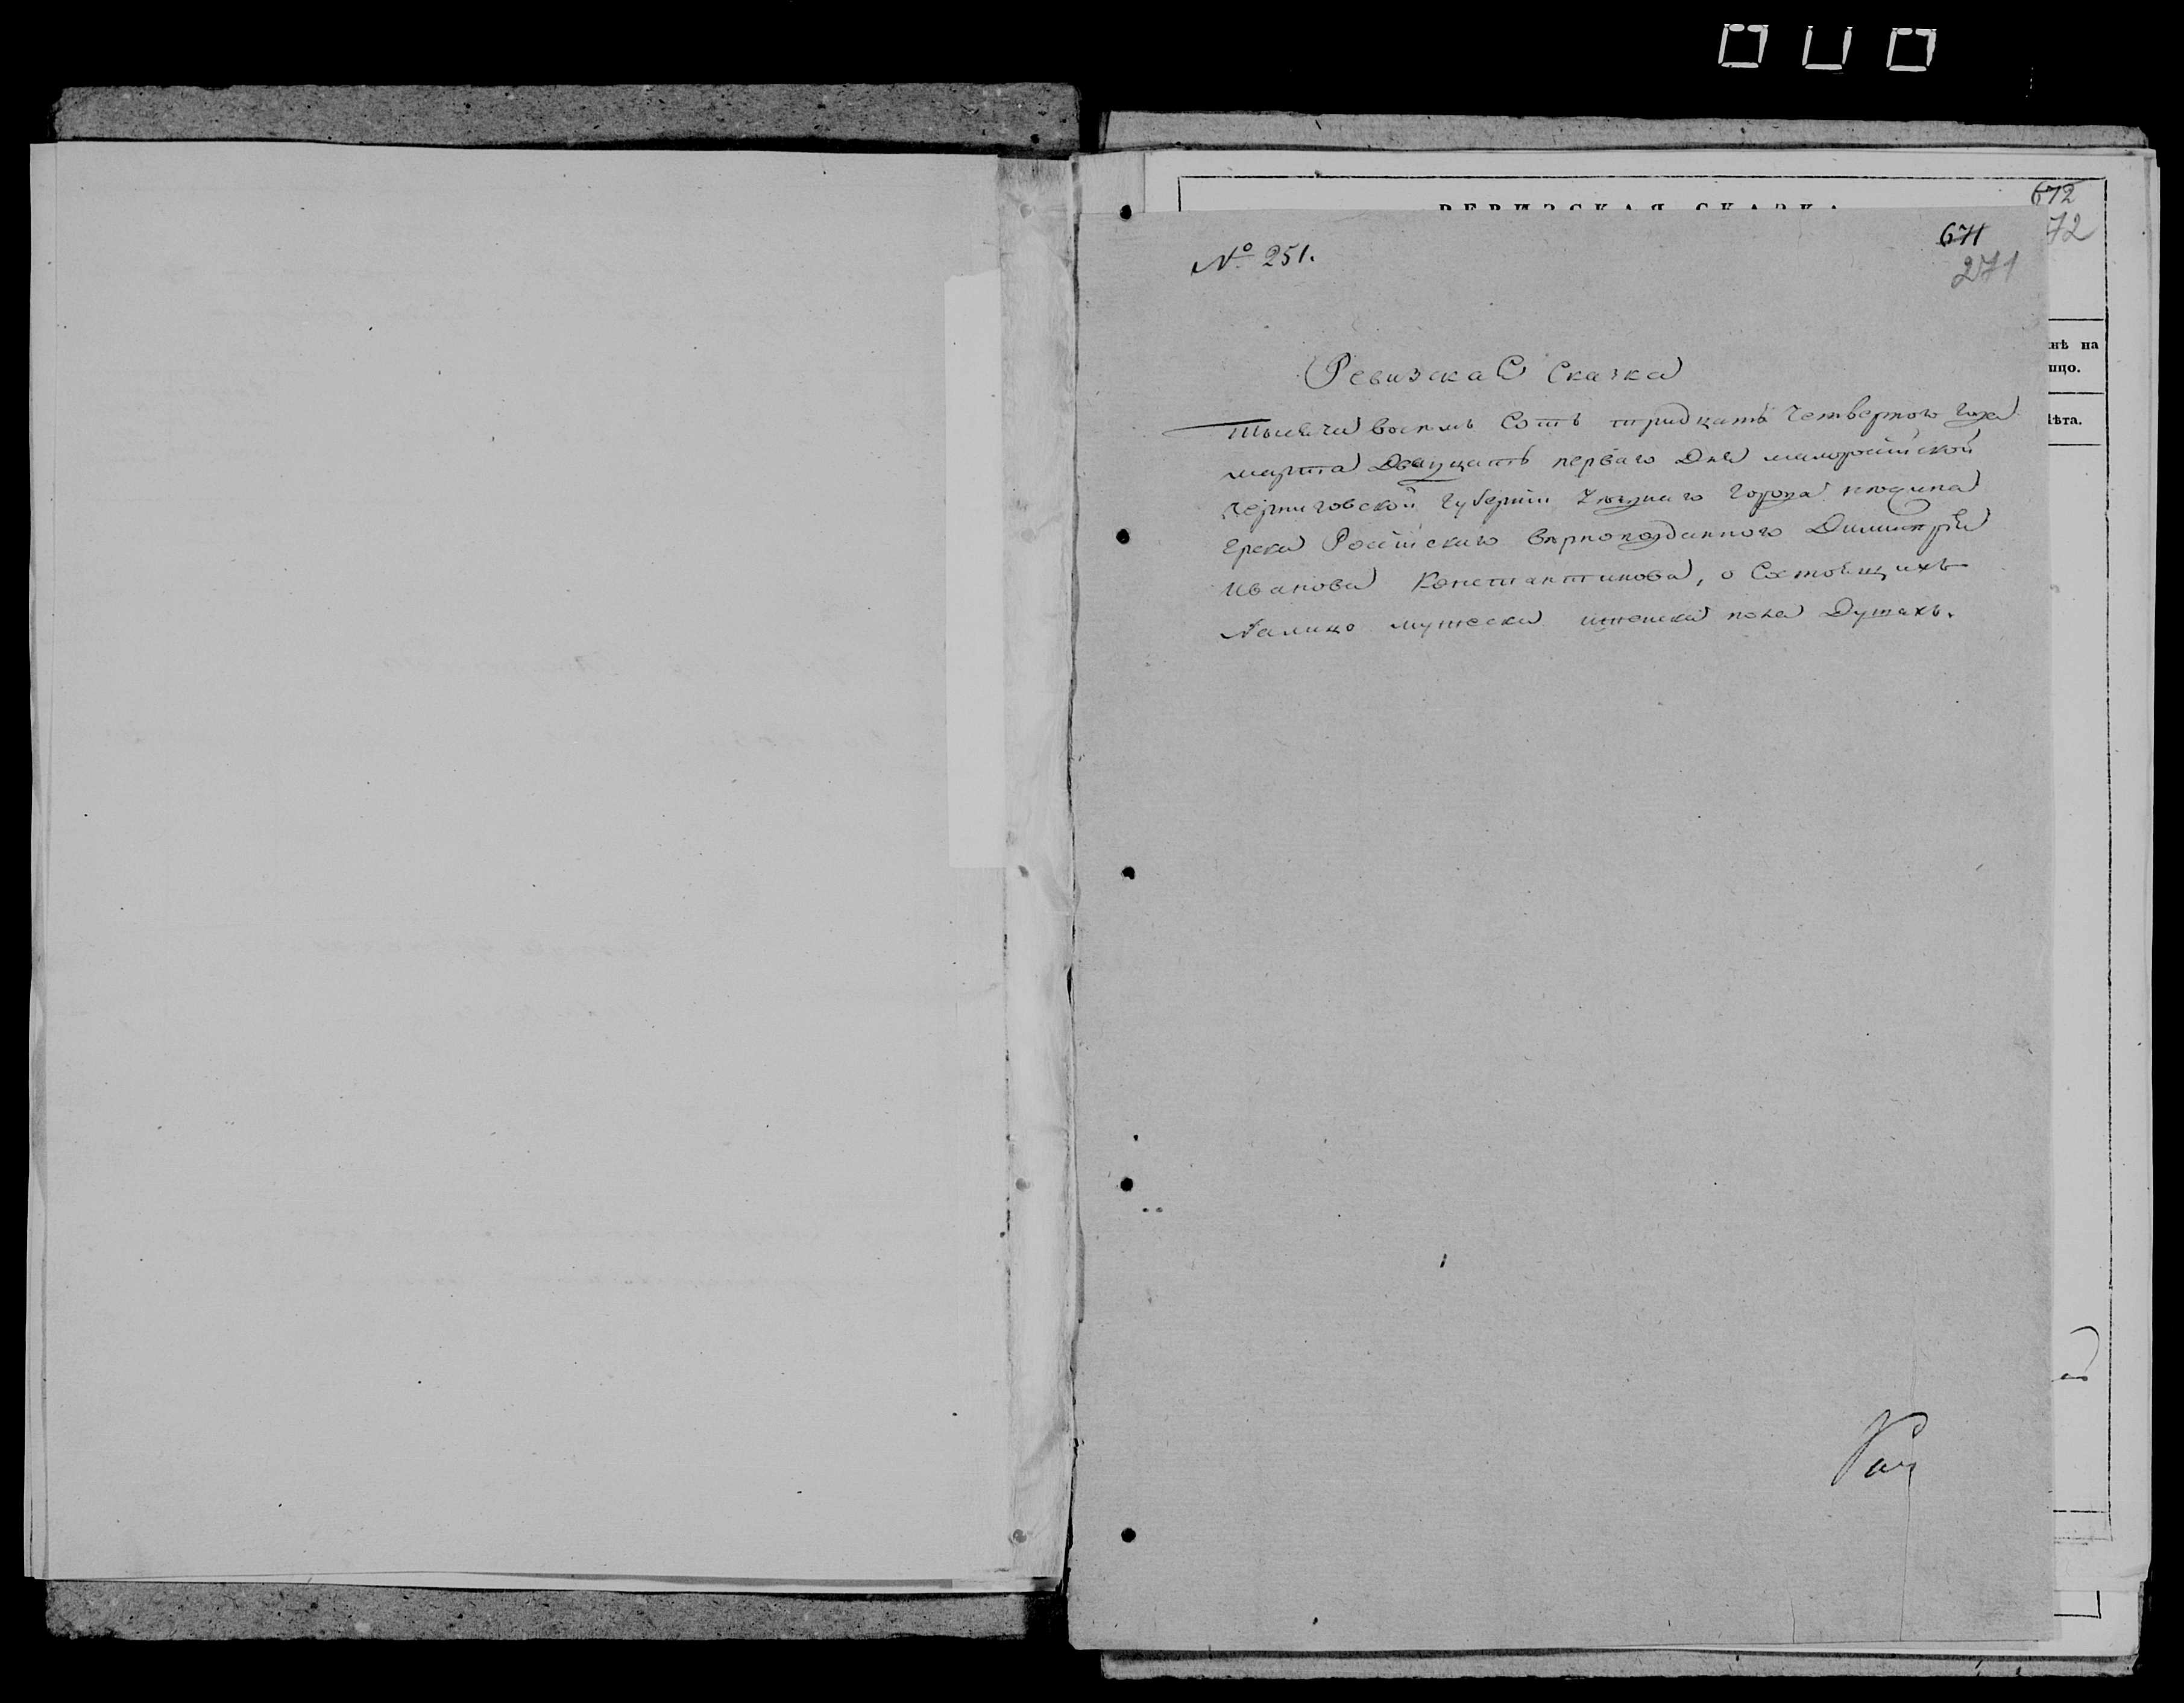 672
РЕВИЗСКАЯ СКАЗКА
671 72
№ 251.
271
нѣ на
ицо.
лѣта.
Ревизская Сказка
тысяча восемь Сотъ тридцать Четвертого Года
марта Двадцать перваго Дня малоросийской
черниговской Губернии Уезднаго Города нежина
Грека Росийскаго вернопозданного Димитрия
Иванова Константинова, о Состоящихъ
Налицо мужеска иженска пола Душахъ.